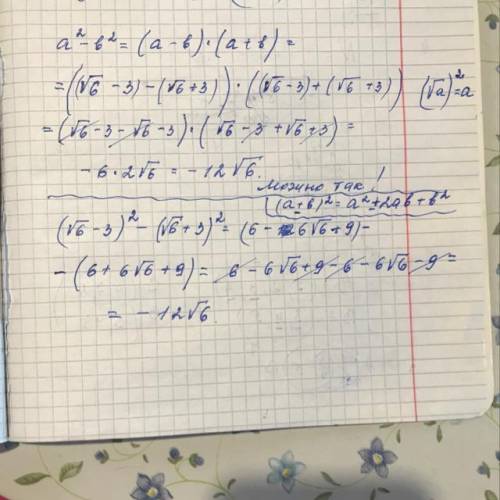 a² - b² = (a - b) · (a + b) =
= ((√6 - 3) - (√6 + 3)) · ((√6 - 3) + (√6 + 3)) (√a)² = a
= (√6 - 3 - √6 - 3) · (√6 - 3 + √6 + 3) =
- 6 · 2√6 = - 12√6.
можно так!
(a ± b)² = a² ± 2ab + b²
(√6 - 3)² - (√6 + 3)² = (6 - 6√6 + 9) -
- (6 + 6√6 + 9) = 6 - 6√6 + 9 - 6 - 6√6 - 9 =
= - 12√6